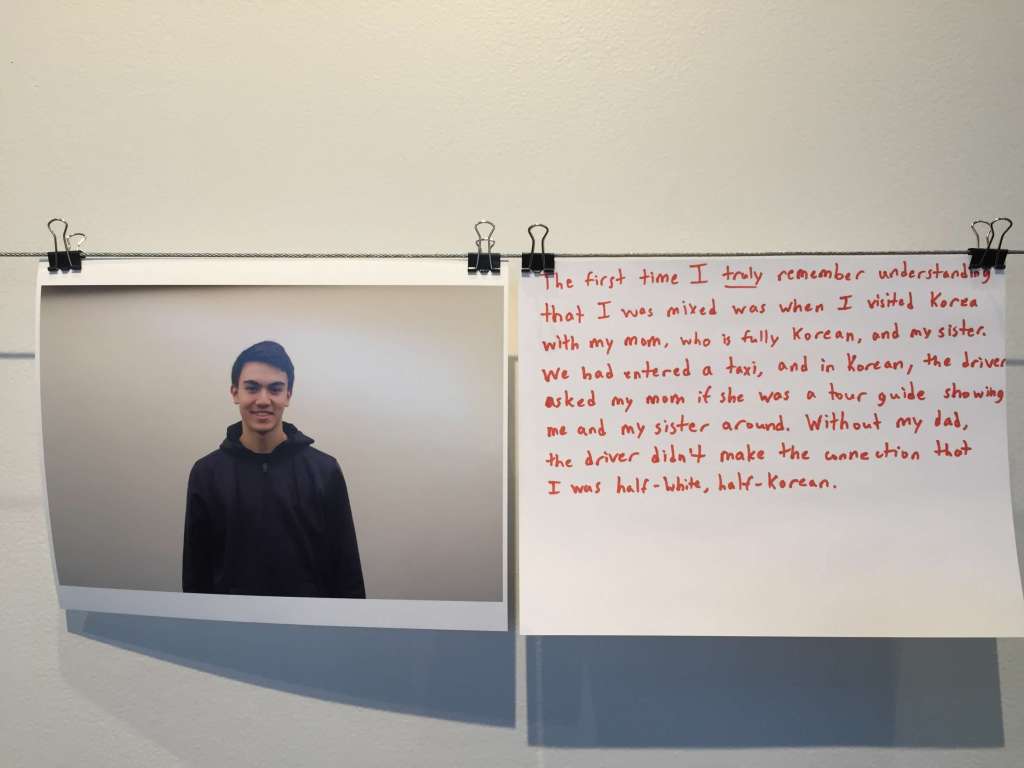 The first time I truly remember understanding
that I was mixed was when I visited Korea
with my mom, who is fully Korean, and my sister.
We had entered a taxi, and in Korean, the driver
asked my mom if she was a tour guide showing
me and my sister around. Without my dad,
the driver didn't make the connection that
I was half-White, half-Korean.